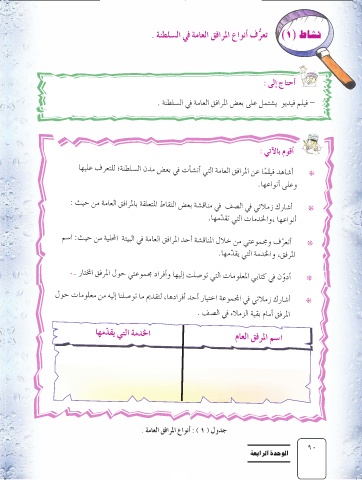 نشاط (١)
تعرَّف أنواع المرافق العامة في السلطنة .
أحتاج إلى :
– فيلم فيديو يشتمل على بعض المرافق العامة في السلطنة .
أقوم بالآتي :
* أشاهد فيلمًا عن المرافق العامة التي أنشأت في بعض مدن السلطنة؛ للتعرف عليها
وعلى أنواعها.
* أشارك زملائي في الصف في مناقشة بعض النقاط المتعلقة بالمرافق العامة من حيث :
أنواعها ،والخدمات التي تقدّمها.
* أتعرَّف ومجموعتي من خلال المناقشة أحد المرافق العامة في البيئة المحلية من حيث: اسم
المرفق، والخدمة التي يقدّمها.
* أدوّن في كتابي المعلومات التي توصلت إليها وأفراد مجموعتي حول المرفق المختار .
* أشارك زملائي في المجموعة اختيار أحد أفرادها، لتقديم ما توصلنا إليه من معلومات حول
المرفق أمام بقية الزملاء في الصف .
اسم المرفق العام
الخدمة التي يقدّمها
جدول (١) : أنواع المرافق العامة .
٩٠
الوحدة الرابعة